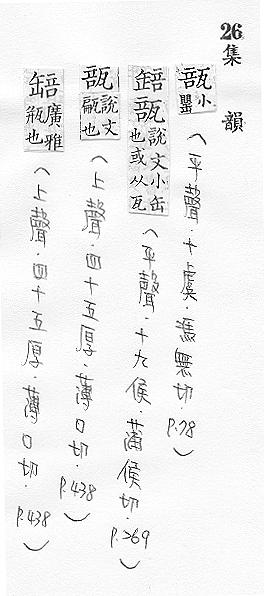 26 集韻
瓿 小罌 (平聲.十虞.馮無切.P.78)
䍌瓿 說文小缶也或从瓦 (平聲.十九候.蒲候切.P.269)
瓿 說文甂也 (上聲.四十五厚.薄口切.P.438)
䍌 廣雅瓶也 (上聲.四十五厚.薄口切.P.438)